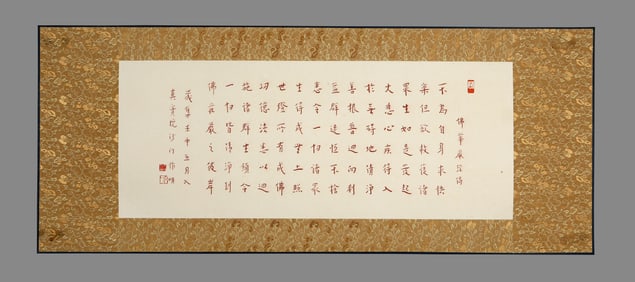 佛華嚴經偈
不為自身求快
樂但欲救護諸
眾生如是發起
大悲心疾得入
於無礙地清淨
善根普迴向利
益群迷恆不捨
悉令一切諸眾
生得成無上照
世燈所有成佛
功德法悉以迴
施諸群生願令
一切皆得淨到
佛莊嚴之彼岸
歲在壬申五月